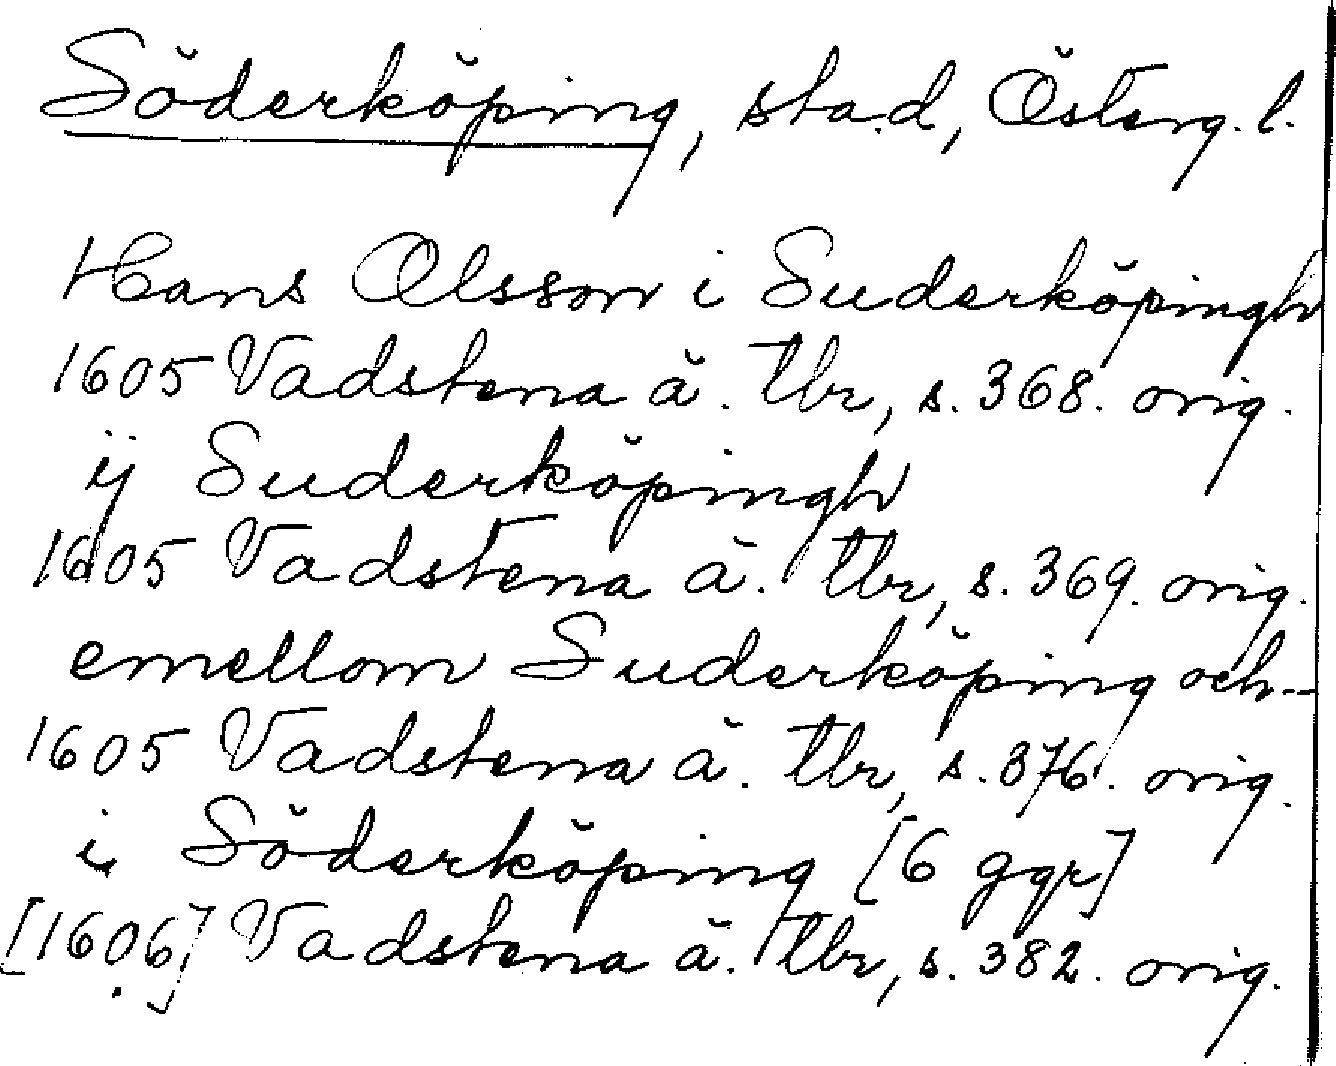 Söderköping, stad, Österg. l.
Hans Olsson i Suderköpingh
1605 Vadstena ä. tbr, s. 368. orig.
ij Suderköpingh
1605 Vadstena ä. tbr, s. 369. orig.
emellom Suderköping och -
1605 Vadstena ä. tbr, s. 376. orig.
i Söderköping [6 ggr]
[1606] Vadstena ä. tbr, s. 382. orig.